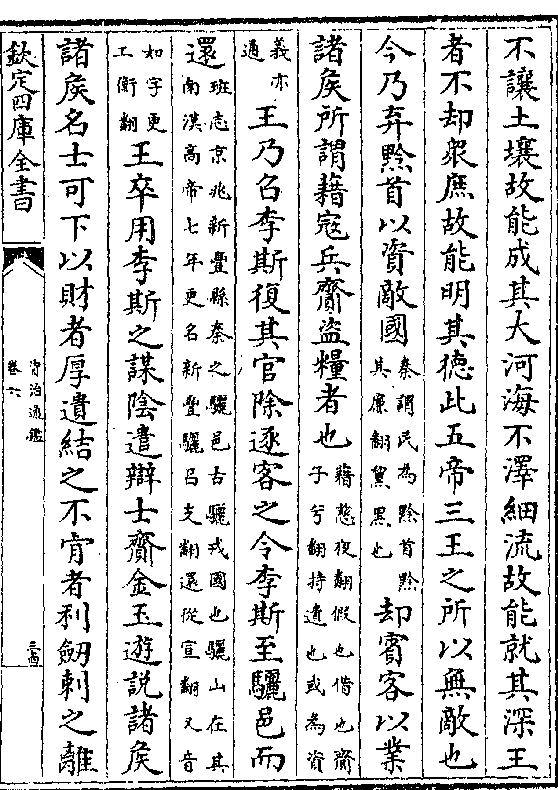 不讓土壤故能成其大河海不澤細流故能就其深王
者不却衆庶故能明其德此五帝三王之所以無敵也
今乃弃黔首以資敵國秦謂民為黔首黔其廉翻黧黒也却賓客以業
諸侯所謂藉寇兵齎盜糧者也藉慈夜翻假也借也齎子兮翻持遺也或為資
義亦通王乃召李斯復其官除逐客之令李斯至驪邑而
還班志京兆新豐縣秦之驪邑古驪戎國也驪山在其南漢高帝七年更名新豐驪吕支翻還從宣翻又音
如字更工衡翻王卒用李斯之謀陰遣辯士齎金玉遊説諸侯
諸侯名士可下以財者厚遺結之不肯者利劒刺之離
欽定四庫全書
資治通鑑
卷六
三十四